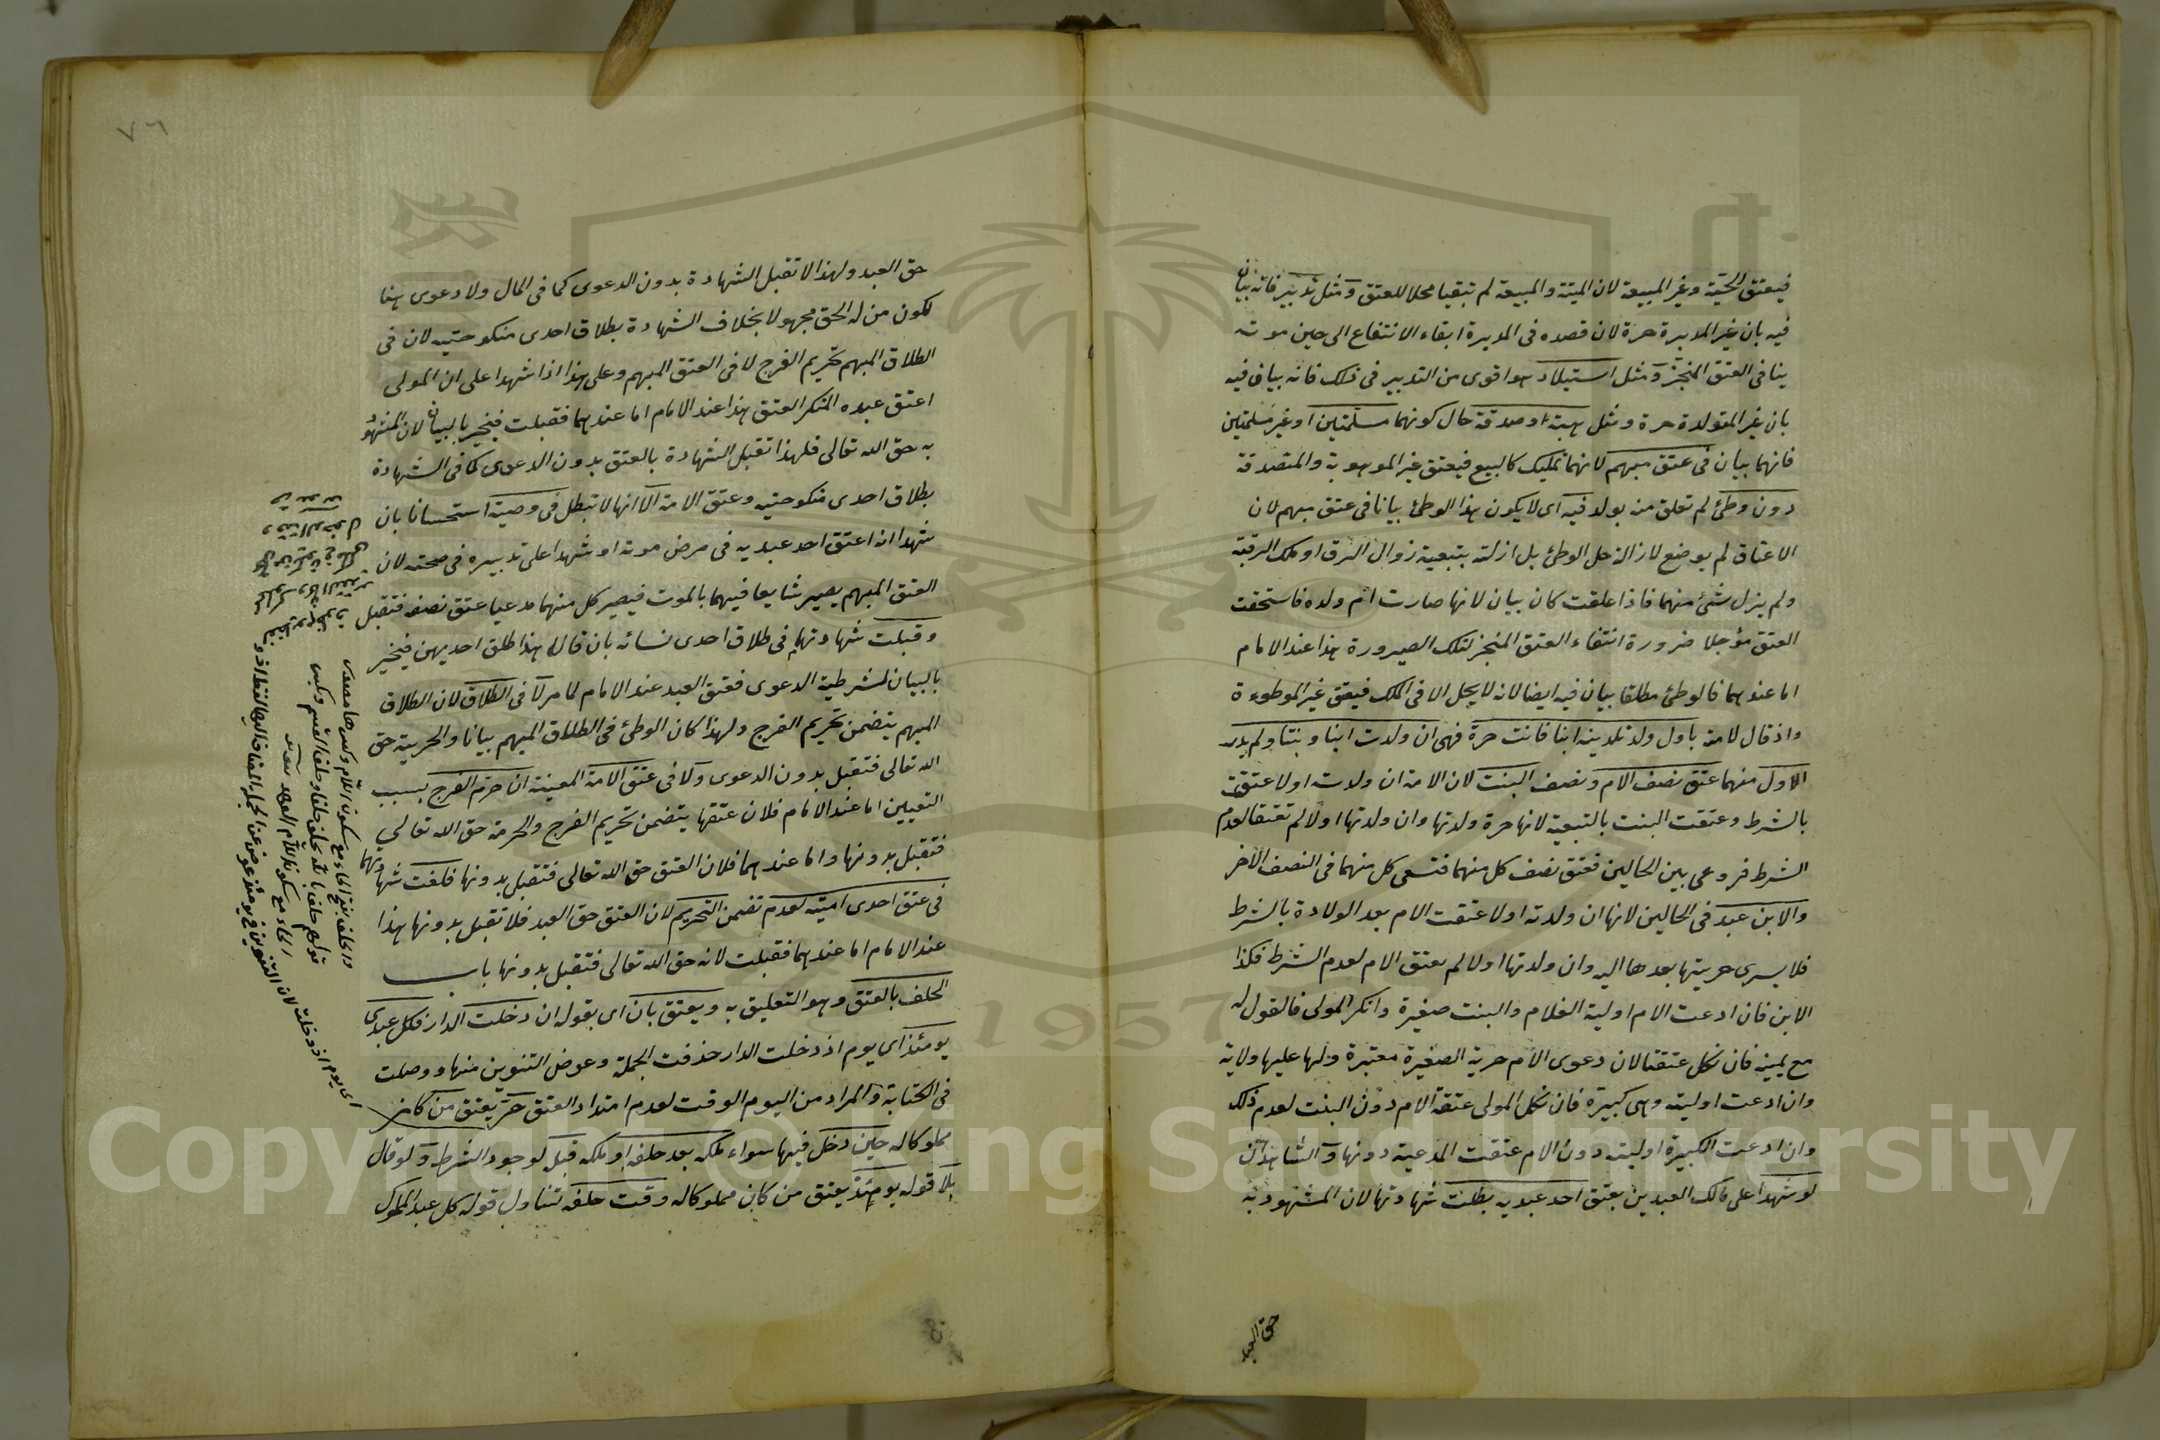 فيعتق الحية وغير المبيعة لان الميتة والمبيعة لم تبقيا محلا للعتق ومثل تدبير فانه بيان
فيه بان غير المدبرة حرة لان قصده في المدبرة ابقاء الانتفاع الى حين موته
ينافي العتق المنجز ومثل استيلاد هو اقوى من التدبير في ذلك فانه بيان فيه
بان غير المتولدة حرة ومثل هبة او صدقة حال كونهما مسلمتين او غير مسلمتين
فانهما بيان في عتق مبهم لانهما تمليك كالبيع فيعتق غير الموهوبة والمتصدقة
دون وطئ لم تعلق منه بولد فيه اى لا يكون هذا الوطئ بيانا في عتق مبهم لان
الاعتاق لم يوضع لازالة حل الوطئ بل ازلته بتبعية زوال الرق او ملك الرقبة
ولم يزل شئ منهما فاذا علقت كان بيان لانها صارت ام ولده فاستحقت
العتق مؤجلا ضرورة انتفاء العتق المنجز لتلك الصيرورة هذا عند الامام
اما عندهما فالوطئ مطلقا بيان فيه ايضا لانه لا يحل الا في الملك فيعتق غير الموطوءة
واذ قال لامته باول ولد تلدينه ابنا فانت حرة فهى ان ولدت ابنا وبنتا ولم يدر
الاول منهما عتق نصف الام ونصف البنت لان الامة ان ولدته اولا عتقت
بالشرط وعتقت البنت بالتبعية لانها حرة ولدتها وان ولدتها اولا لم تعتقا لعدم
الشرط فروعي بين الحالين فعتق نصف كل منهما فتسعى كل منهما في النصف الآخر
والابن عبد في الحالين لانها ان ولدته اولا عتقت الام بعد الولادة بالشرط
فلا يسرى حريتها بعدها اليه وان ولدتها اولا لم يعتق الام لعدم الشرط فكذا
الابن فان ادعت الام اولية الغلام والبنت صغيرة وانكر المولى فالقول له
مع يمينه فان نكل عتقتا لان دعوى الام حرية الصغيرة معتبرة ولها عليها ولاية
وان ادعت اوليته وهى كبيرة فان نكل المولى عتقه الام دون البنت لعدم ذلك
وان ادعت الكبيرة اوليته دون الام عتقت المدعية دونها والشاهدان
لو شهدا على مالك العبدين بعتق احد عبديه بطلت شهادتها لان المشهود به
حق العبد
٧٦
حق العبد ولهذا لا تقبل الشهادة بدون الدعوى كما في المال ولا دعوى هنا
لكون من له الحق مجهولا بخلاف الشهادة بطلاق احدى منكوحتيه لان في
الطلاق المبهم تحريم الفرج لا في العتق المبهم وعلى هذا اذا شهدا على ان المولى
اعتق عبده المنكر العتق هذا عند الامام اما عندهما فقبلت فيخير بالبيان لان المشهود
به حق الله تعالى فلهذا تقبل الشهادة بالعتق بدون الدعوى كما في الشهادة
بطلاق احدى منكوحتيه وعتق الامة الا انها لا تبطل في وصية استحسانا بان
شهدا انه اعتق احد عبديه في مرض موته او شهدا على تدبيره في صحته لان
العتق المبهم يصير شايعا فيهما بالموت فيصير كل منهما مدعيا عتق نصفه فتقبل
وقبلت شهادتهما في طلاق احدى نسائه بان قالا هذا طلق احديهن فيخير
بالبيان لشرطية الدعوى فعتق العبد عند الامام لما مر لا في الطلاق لان الطلاق
المبهم يتضمن تحريم الفرج ولهذا كان الوطئ في الطلاق المبهم بيانا والحرية حق
الله تعالى فتقبل بدون الدعوى ولا في عتق الامة المعينة ان حرم الفرج بسبب
التعيين اما عند الامام فلان عتقها يتضمن تحريم الفرج والحرمة حق الله تعالى
فتقبل بدونها واما عندهما فلان العتق حق الله تعالى فتقبل بدونها فلغت شهادتهما
في عتق احدى امتيه لعدم تضمن التحريم لان العتق حق العبد فلا تقبل بدونها هذا
عند الامام اما عندهما فقبلت لانه حق الله تعالى فتقبل بدونها باب
الحلف بالعتق وهو التعليق به ويعتق بان اى بقوله ان دخلت الدار فكل عبد لى
يومئذ اى يوم اذ دخلت الدار حذفت الجملة وعوض التنوين منها ووصلت
في الكتابة والمراد من اليوم الوقت لعدم امتداد العتق حر يعتق من كان
مملوكا له حين دخل فيها سواء ملكه بعد حلفه او ملكه قبل لوجود الشرط ولو قال
بلا قوله يومئذ يعتق من كان مملوكا له وقت حلفه لتناول قوله كل عبد المملوك
والحلف بفتح الحاء مع سكون اللام وكسرها مصدر
قولهم حلف بالله يحلف حلفا وحلفا القسم وبكسر
الحاء مع سكون اللام العهد
اى يوم اذ دخلت لان التنوين في يومئذ عوض عن الجملة المضاف اليها لفظ اذ